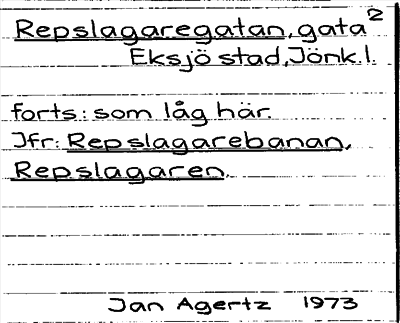 Repslagaregatan, gata 2
Eksjö stad, Jönk.l.
forts: som låg här.
Jfr: Repslagarebanan,
Repslagaren.
Jan Agertz 1973